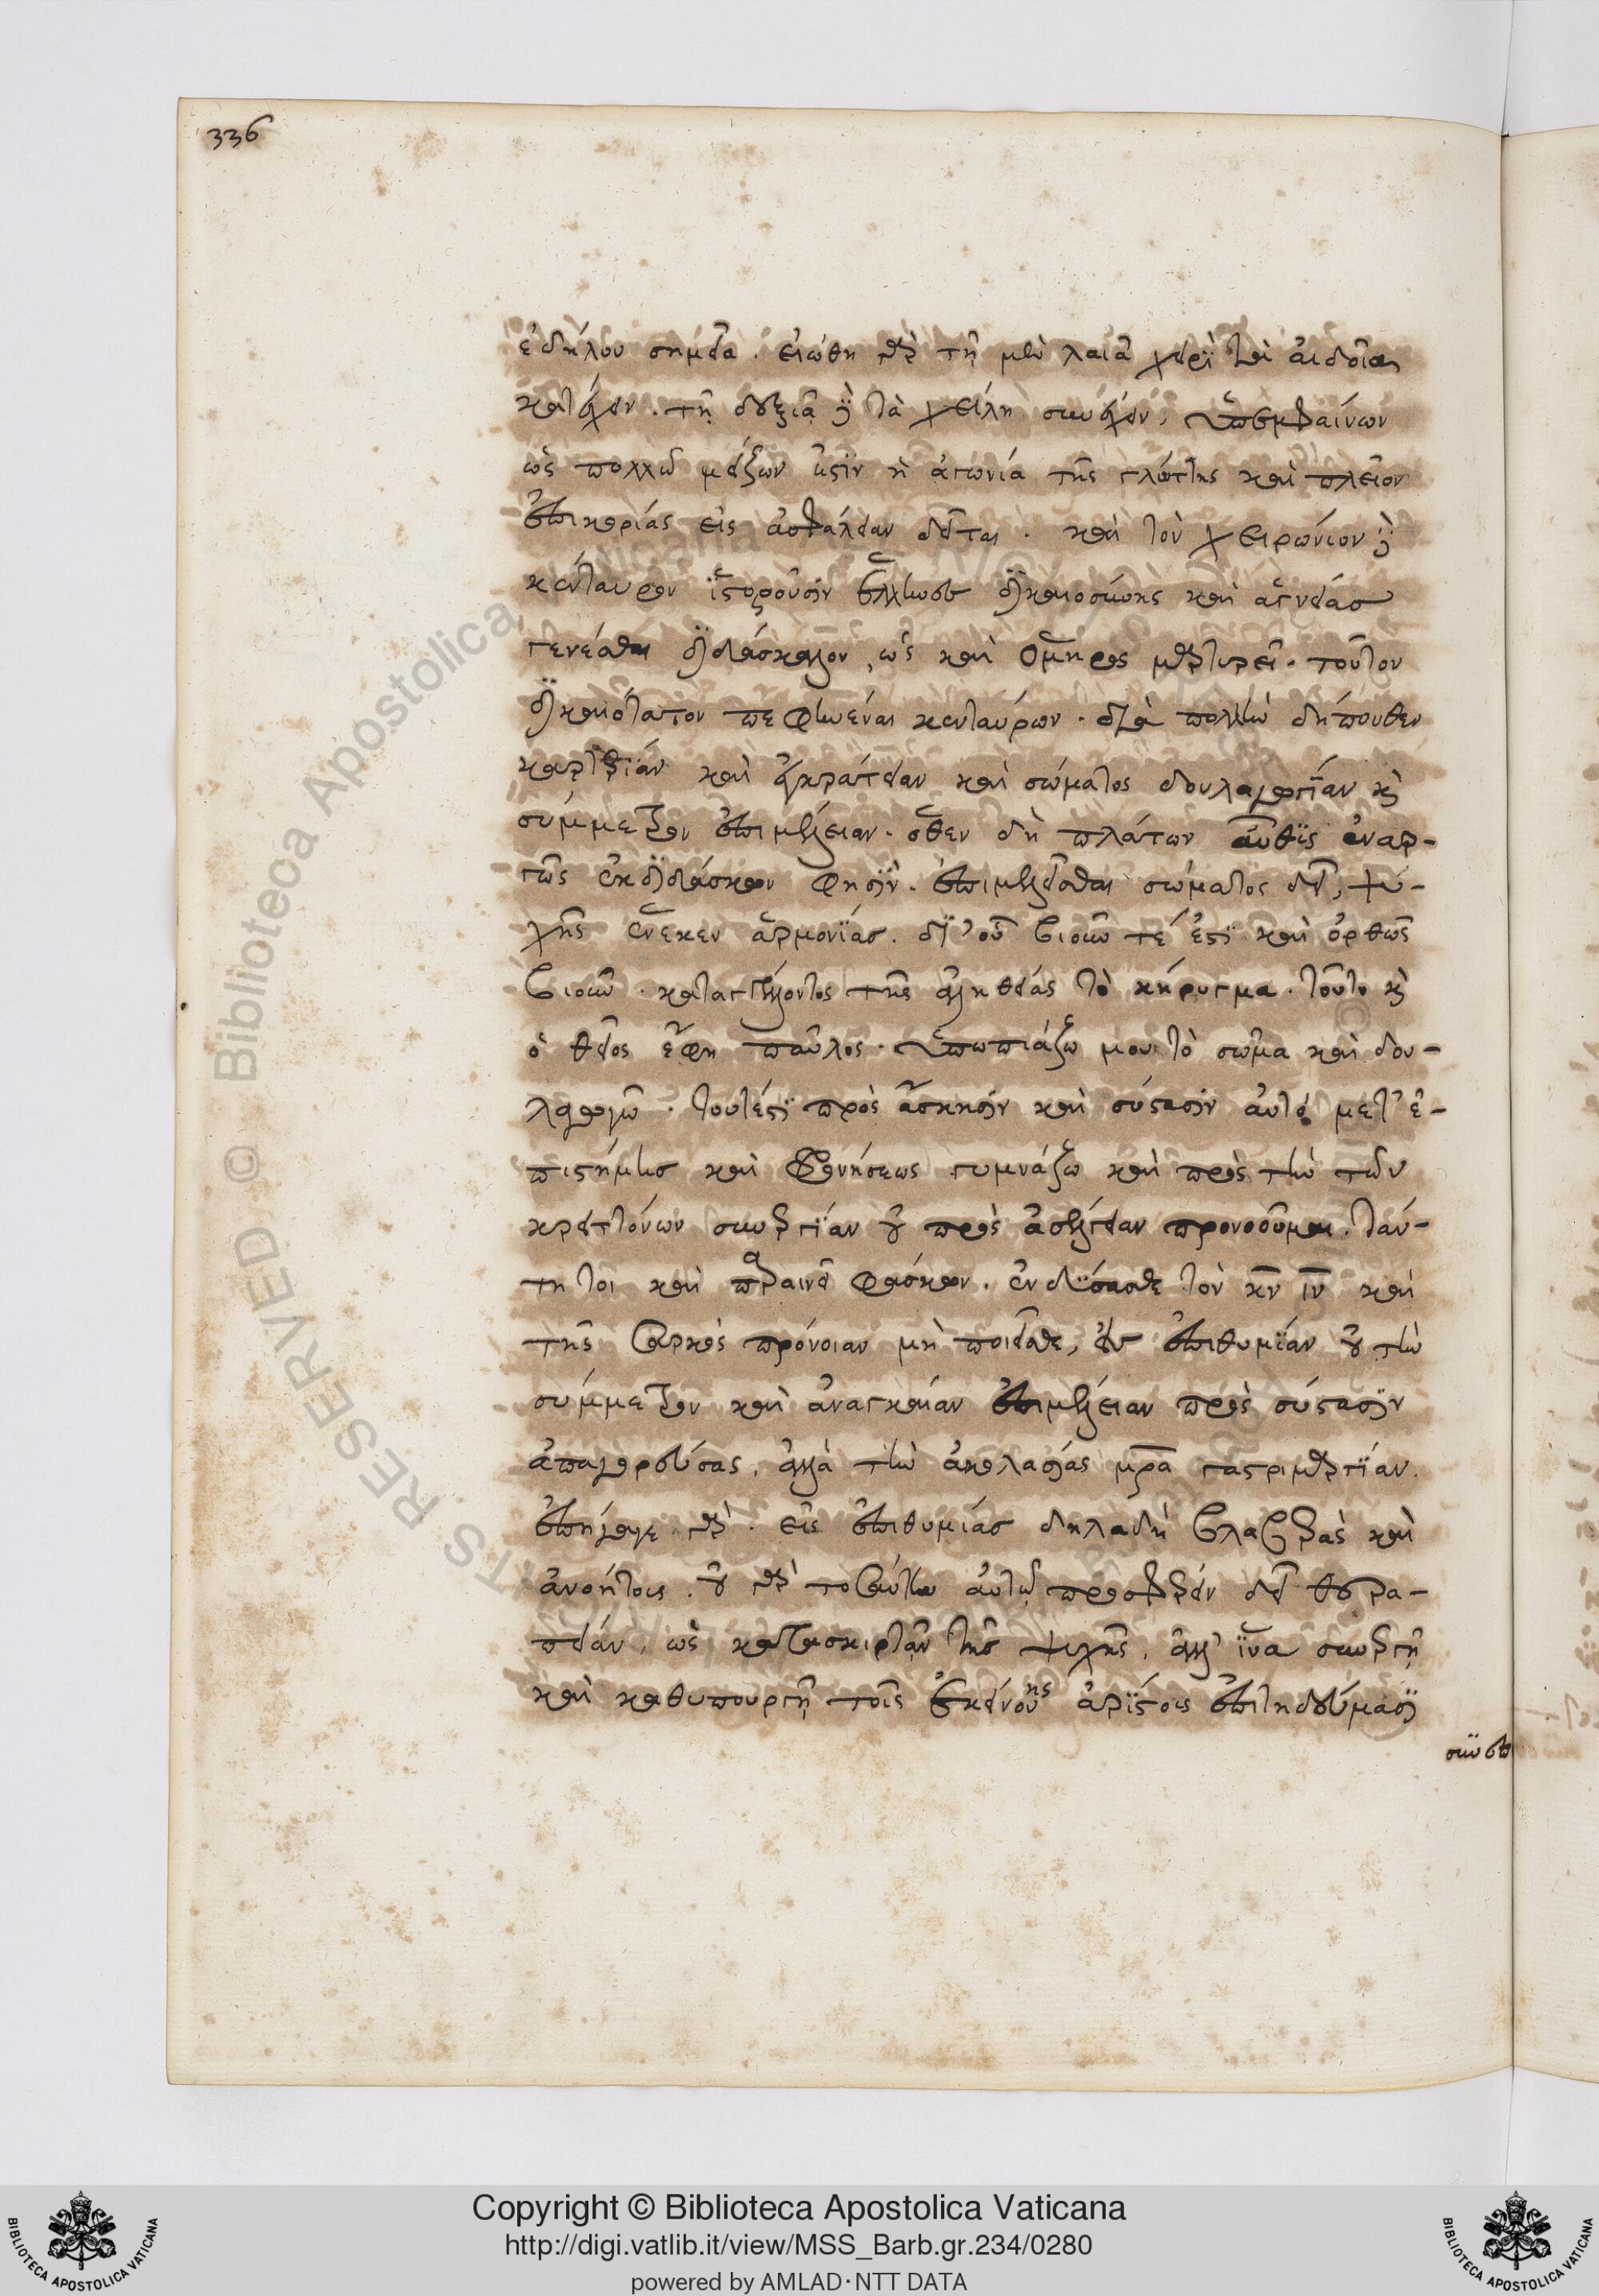 336
ἐδήλου σημεῖα. εἰώθη γὰρ τῇ μὲν λαιᾷ χειρὶ τὰ αἰδοῖα
κατέχειν. τῇ δεξιᾷ δὲ τὰ χείλη συνέχειν, ὑπεμφαίνων
ὡς πολλῷ μείζων ἐστὶν ἡ ἀγωνία τῆς γλώττης καὶ πλεῖον
ἐπικουρίας εἰς ἀσφάλειαν δεῖται. καὶ τὸν χειρώνιον δὲ
κένταυρον ἱστοροῦσιν ἕλλησι δικαιοσύνης καὶ ἁγνείας
γενέσθαι διδάσκαλον, ὡς καὶ ὅμηρος μαρτυρεῖ. τοῦτον
δικαιότατον πεφηνέναι κενταύρων. διὰ πολλὴν δήπουθεν
καρτερίαν καὶ ἐγκράτειαν καὶ σώματος δουλαγωγίαν καὶ
σύμμετρον ἐπιμέλειαν. ὅθεν δὴ πλάτων αὖθις ἐναρ-
γῶς ἐκδιδάσκων φησὶν. ἐπιμελεῖσθαι σώματος δεῖ, ψυ-
χῆς ἕνεκεν ἁρμονίας. δι' οὗ βιοῦν τέ ἐστι καὶ ὀρθῶς
βιοῦν. καταγγέλλοντος τῆς ἀληθείας τὸ κήρυγμα. τοῦτο καὶ
ὁ θεῖος ἔφη παῦλος. ὑπωπιάζω μου τὸ σῶμα καὶ δου-
λαγωγῶ. τουτέστι πρὸς ἄσκησιν καὶ σύστασιν αὐτὸ μετ' ἐ-
πιστήμης καὶ φρονήσεως γυμνάζω καὶ πρὸς τὴν τῶν
κρειττόνων συνεργίαν οὐ πρὸς ἀσέλγειαν προνοοῦμαι. ταύ-
τη τοι καὶ παραινεῖ φάσκων. ἐνδύσασθε τὸν κν ιν καὶ
τῆς σαρκὸς πρόνοιαν μὴ ποιεῖσθε, εἰς ἐπιθυμίαν οὐ τὴν
σύμμετρον καὶ ἀναγκαίαν ἐπιμέλειαν πρὸς σύστασιν
ἀπαγορεύσας, ἀλλὰ τὴν ἀκολασίας μρα γαστριμαργίαν.
ἐπήγαγε γὰρ. εἰς ἐπιθυμίας δηλαδὴ βλαβερὰς καὶ
ἀνοήτους. οὐ γὰρ τοσαύτην αὐτῷ προσφέρειν δεῖ θερα-
πείαν, ὡς κατασκιρτᾶν τῆς ψυχῆς, ἀλλ' ἵνα συνεργῇ
καὶ καθυπουργῇ τοῖς ἐκείνης ἀρίστοις ἐπιτηδεύμασι
Copyright © Biblioteca Apostolica Vaticana
http://digi.vatlib.it/view/MSS_Barb.gr.234/0280
powered by AMLAD·NTT DATA